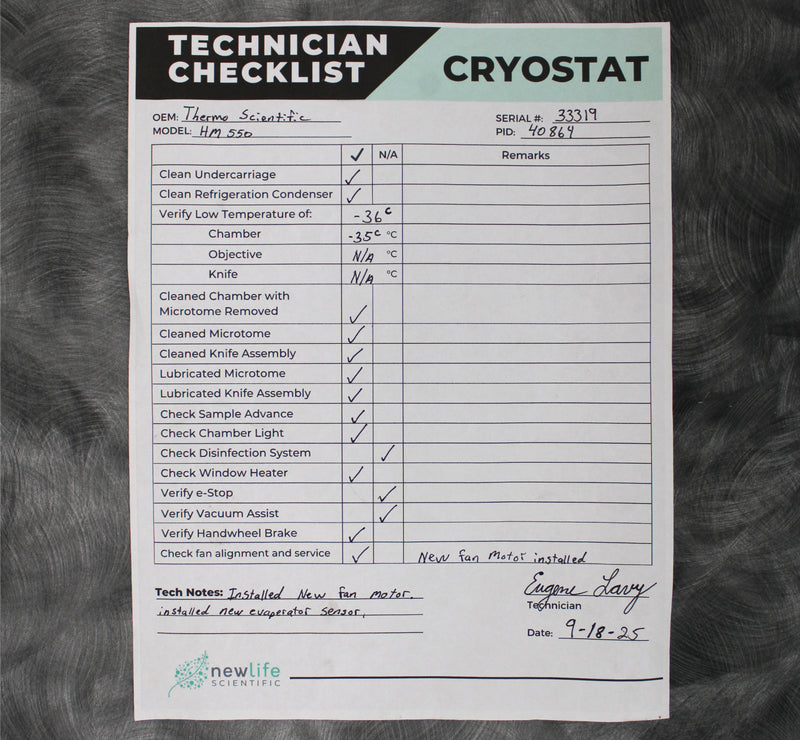 TECHNICIAN CHECKLIST
CRYOSTAT
OEM: Thermo Scientific
MODEL: HM 550
SERIAL #: 33319
PID: 40864
✓ N/A Remarks
Clean Undercarriage ✓
Clean Refrigeration Condenser ✓
Verify Low Temperature of: -36c
Chamber -35c °C
Objective N/A °C
Knife N/A °C
Cleaned Chamber with
Microtome Removed ✓
Cleaned Microtome ✓
Cleaned Knife Assembly ✓
Lubricated Microtome ✓
Lubricated Knife Assembly ✓
Check Sample Advance ✓
Check Chamber Light ✓
Check Disinfection System ✓
Check Window Heater ✓
Verify e-Stop ✓
Verify Vacuum Assist ✓
Verify Handwheel Brake ✓
Check fan alignment and service ✓ New fan motor installed
Tech Notes: Installed New fan motor.
installed new evaperator sensor,
Eugene Lavy
Technician
Date: 9-18-25
newlife
SCIENTIFIC